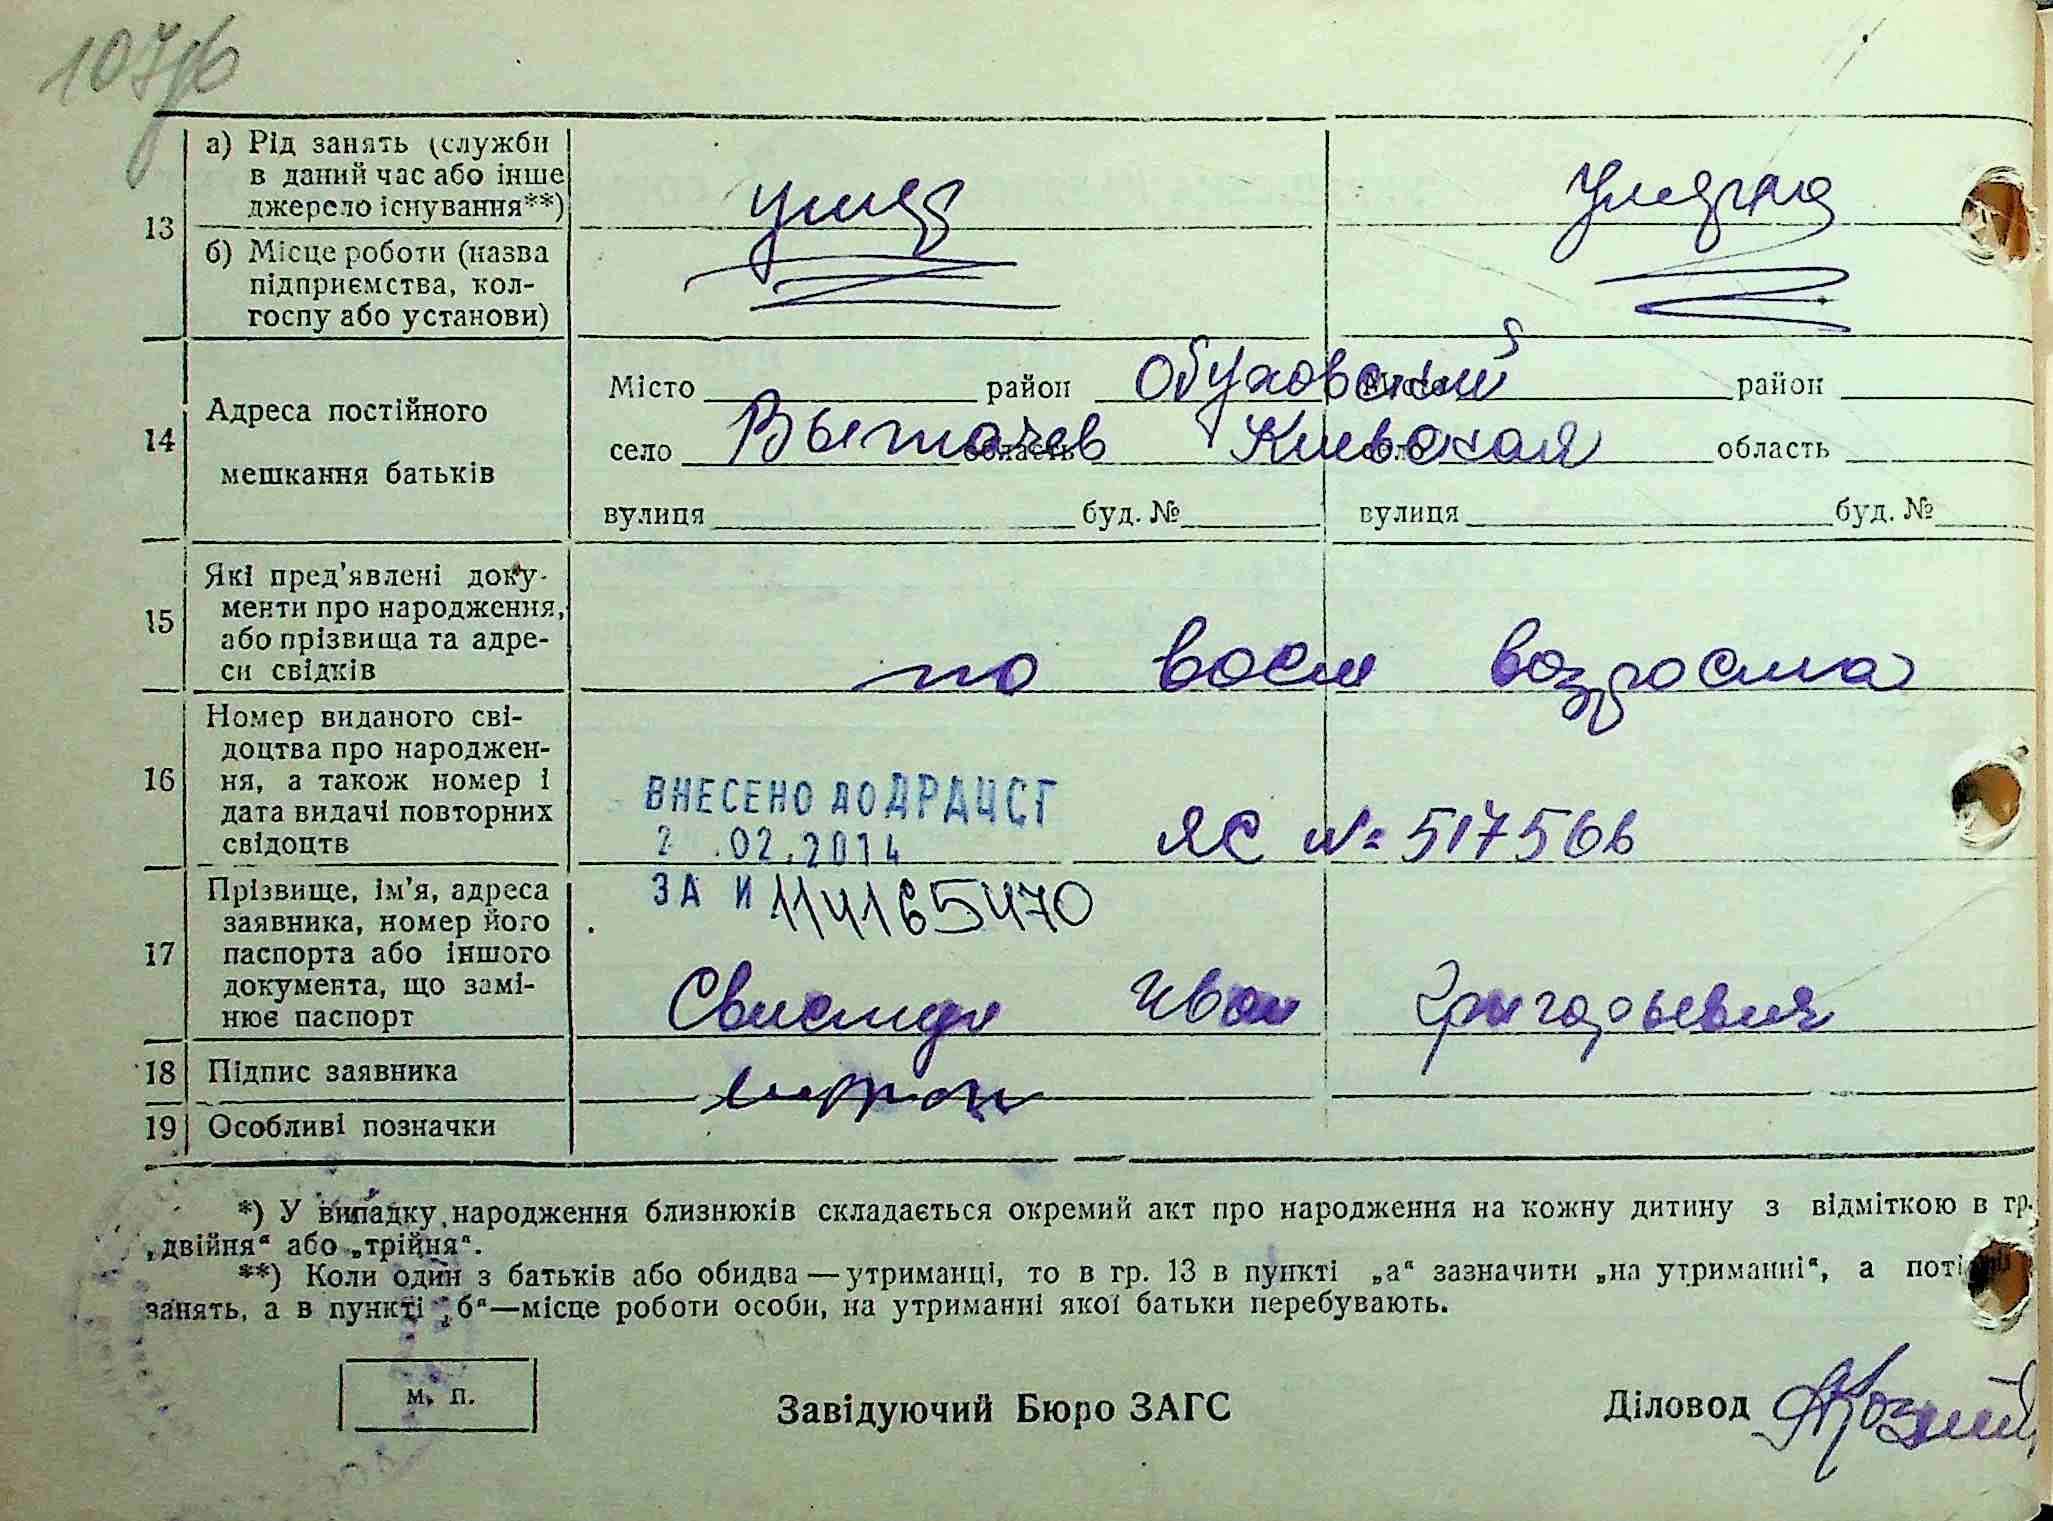 107/б
а) Рід занять (служби
в даний час або інше
джерело існування**)
умер
умерла
13
б) Місце роботи (назва
підприємства, кол-
госпу або установи)
Місто район Обуховский Місто район
14
Адреса постійного
мешкання батьків
село Вытачев область Киевская село область
вулиця буд. № вулиця буд. №
15
Які пред'явлені доку-
менти про народження,
або прізвища та адре-
си свідків
по восм возроста
16
Номер виданого сві-
доцтва про народжен-
ня, а також номер і
дата видачі повторних
свідоцтв
ВНЕСЕНО ДО ДРАЦСГ
2 .02.2014
ЯС № 517566
ЗА И 1141165470
17
Прізвище, ім'я, адреса
заявника, номер його
паспорта або іншого
документа, що замі-
нює паспорт
Иван Григорьевич
18 Підпис заявника
19 Особливі позначки
*) У випадку народження близнюків складається окремий акт про народження на кожну дитину з відміткою в гр.
„двійня“ або „трійня“.
**) Коли один з батьків або обидва—утриманці, то в гр. 13 в пункті „а“ зазначити „на утриманні“, а поті
занять, а в пункті „б“—місце роботи особи, на утриманні якої батьки перебувають.
м. п.
Завідуючий Бюро ЗАГС
Діловод